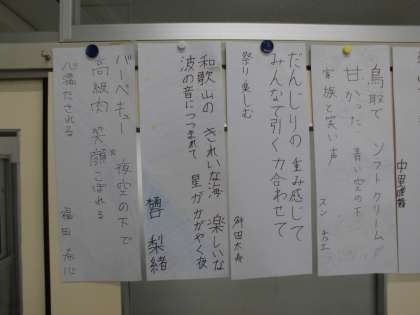 鳥取で ソフトクリームが
甘かった 青い空の下
家族と笑い声
だんじりの 重み感じて
みんなで引く 力合わせて
祭り楽しむ
和歌山の きれいな海 楽しいな
波の音につつまれて 星がかがやく夜
樽 梨緒
バーベキュー 夜空の下で
高級肉 笑顔こぼれる
心満たされる
福田